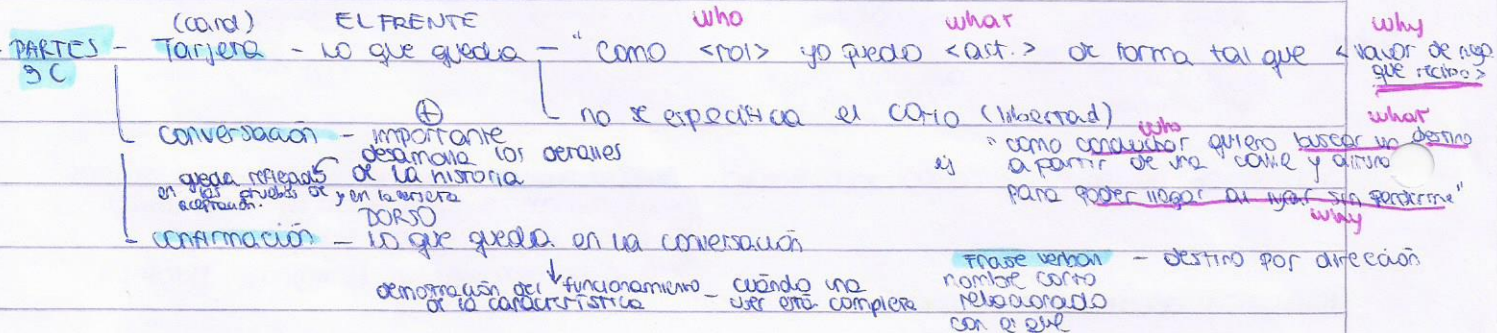 (card) EL FRENTE who what why
- PARTES - Tarjeta - Lo que queda - "Como <rol> yo puedo <act.> de forma tal que <valor de nego. que recibo>
3C
no se especifica el COMO (libertad)
conversación - importante
desarrolla los detalles
de la historia
queda reflejado
en las pruebas de y en la tarjeta
aceptación.
who what
ej "como conductor quiero buscar un destino
a partir de una calle y altura
para poder llegar al lugar sin perderme"
why
DORSO
confirmación - lo que queda en la conversación
demostración del funcionamiento - cuándo una
de la característica user está completa
Frase verbal - destino por dirección
nombre corto
relacionado
con el que